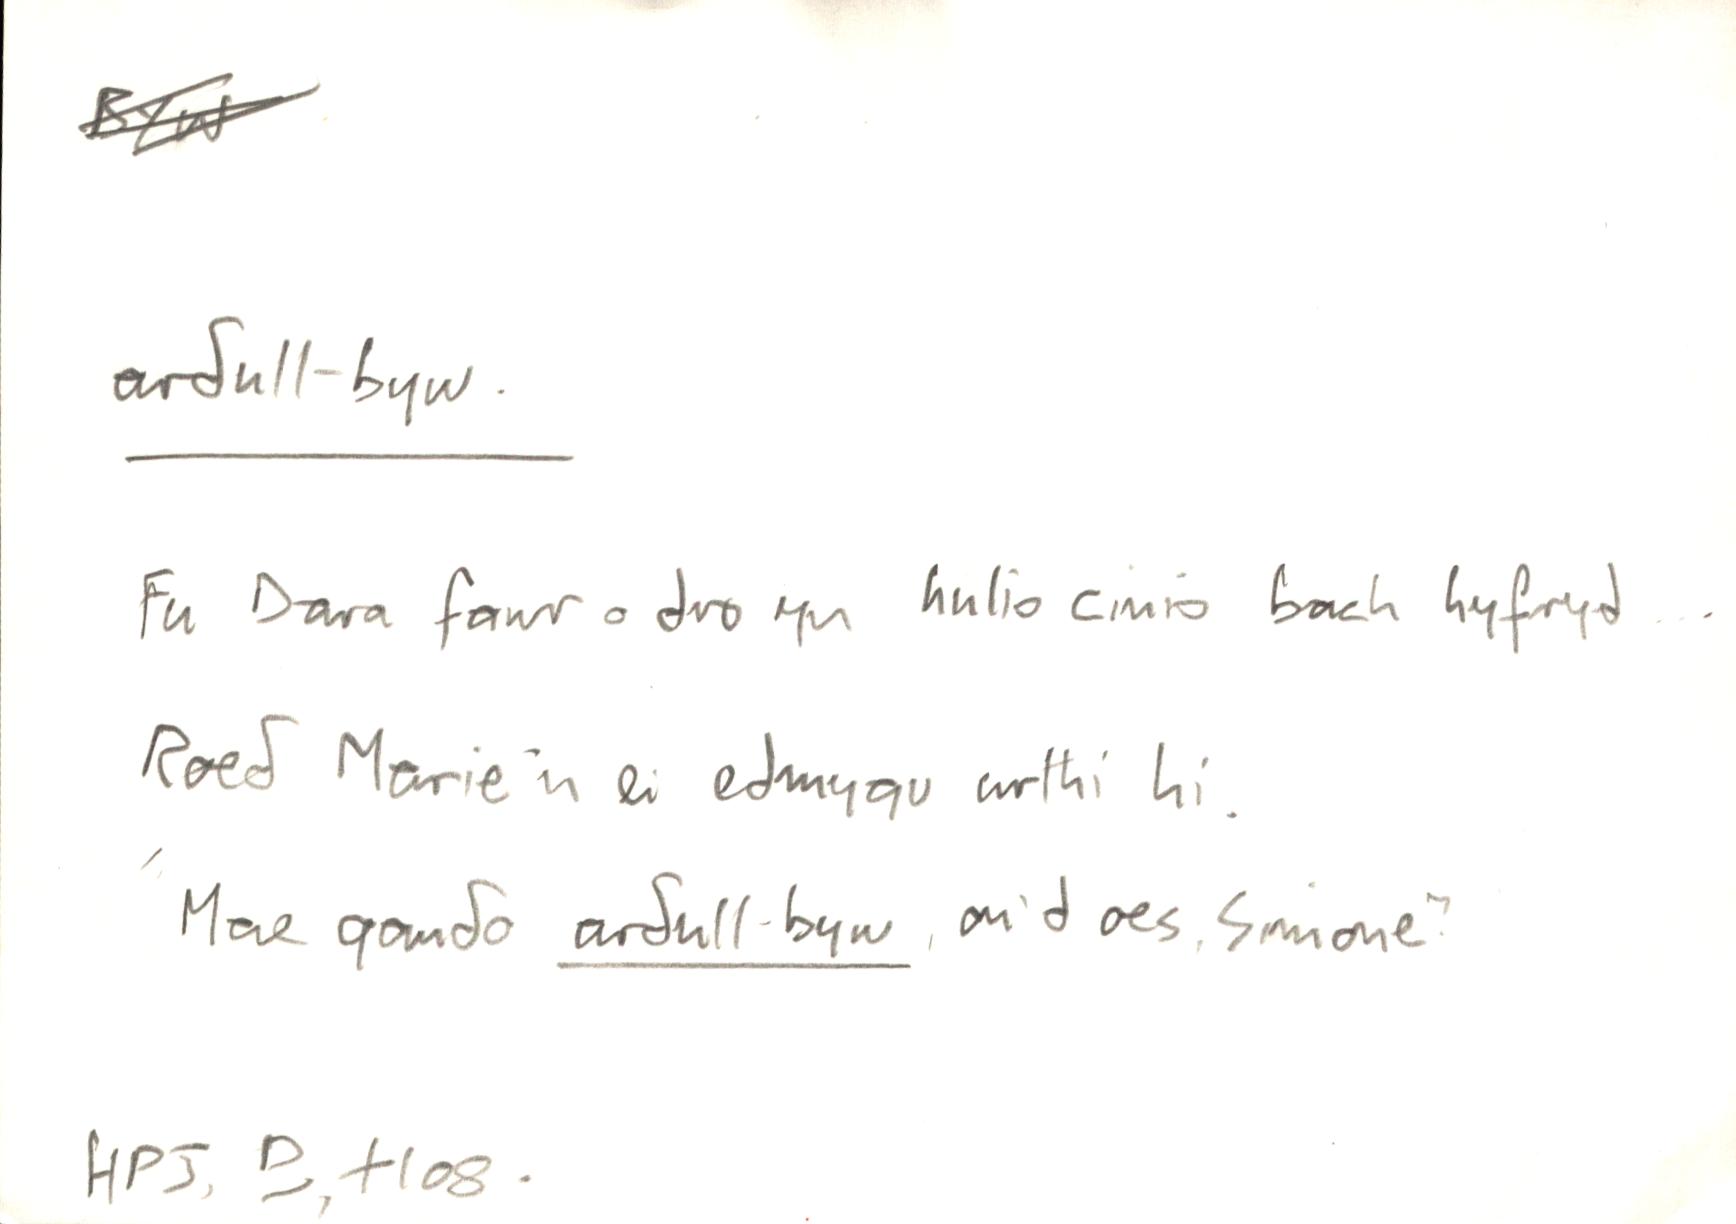 BYW
arδull-byw.
Fu Dara fawr o dro yn hulio cinio bach hyfryd ...
Roeδ Marie'n ei edmygu wrthi hi.
"Mae ganδo arδull-byw, on'd oes, Simone"?
HPJ, D, t108.